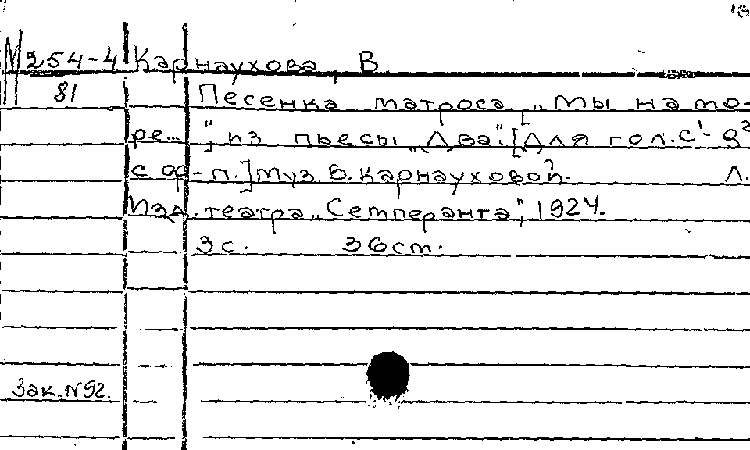 М 254-4 Карнаухова, В.
81 Песенка матроса „Мы на мо-
ре...", из пьесы „Два". [Для гол. с1-
с ф-п.] Муз. В. Карнауховой. Л.
Изд. театра „Семперантэ", 1924.
3 с. 36 ст.
Зак. № 92.